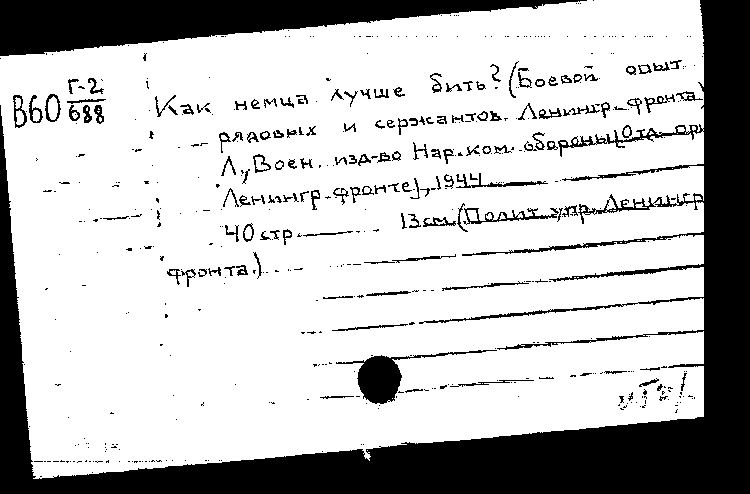 В60 Г-2/688
Как немца лучше бить? (Боевой опыт
рядовых и сержантов. Ленингр. фронта)
Л., Воен. изд-во Нар. ком. обороны [Отд. ори
Ленингр. фронте], 1944
40 стр. 13 см. (Полит. упр. Ленингр
фронта.)